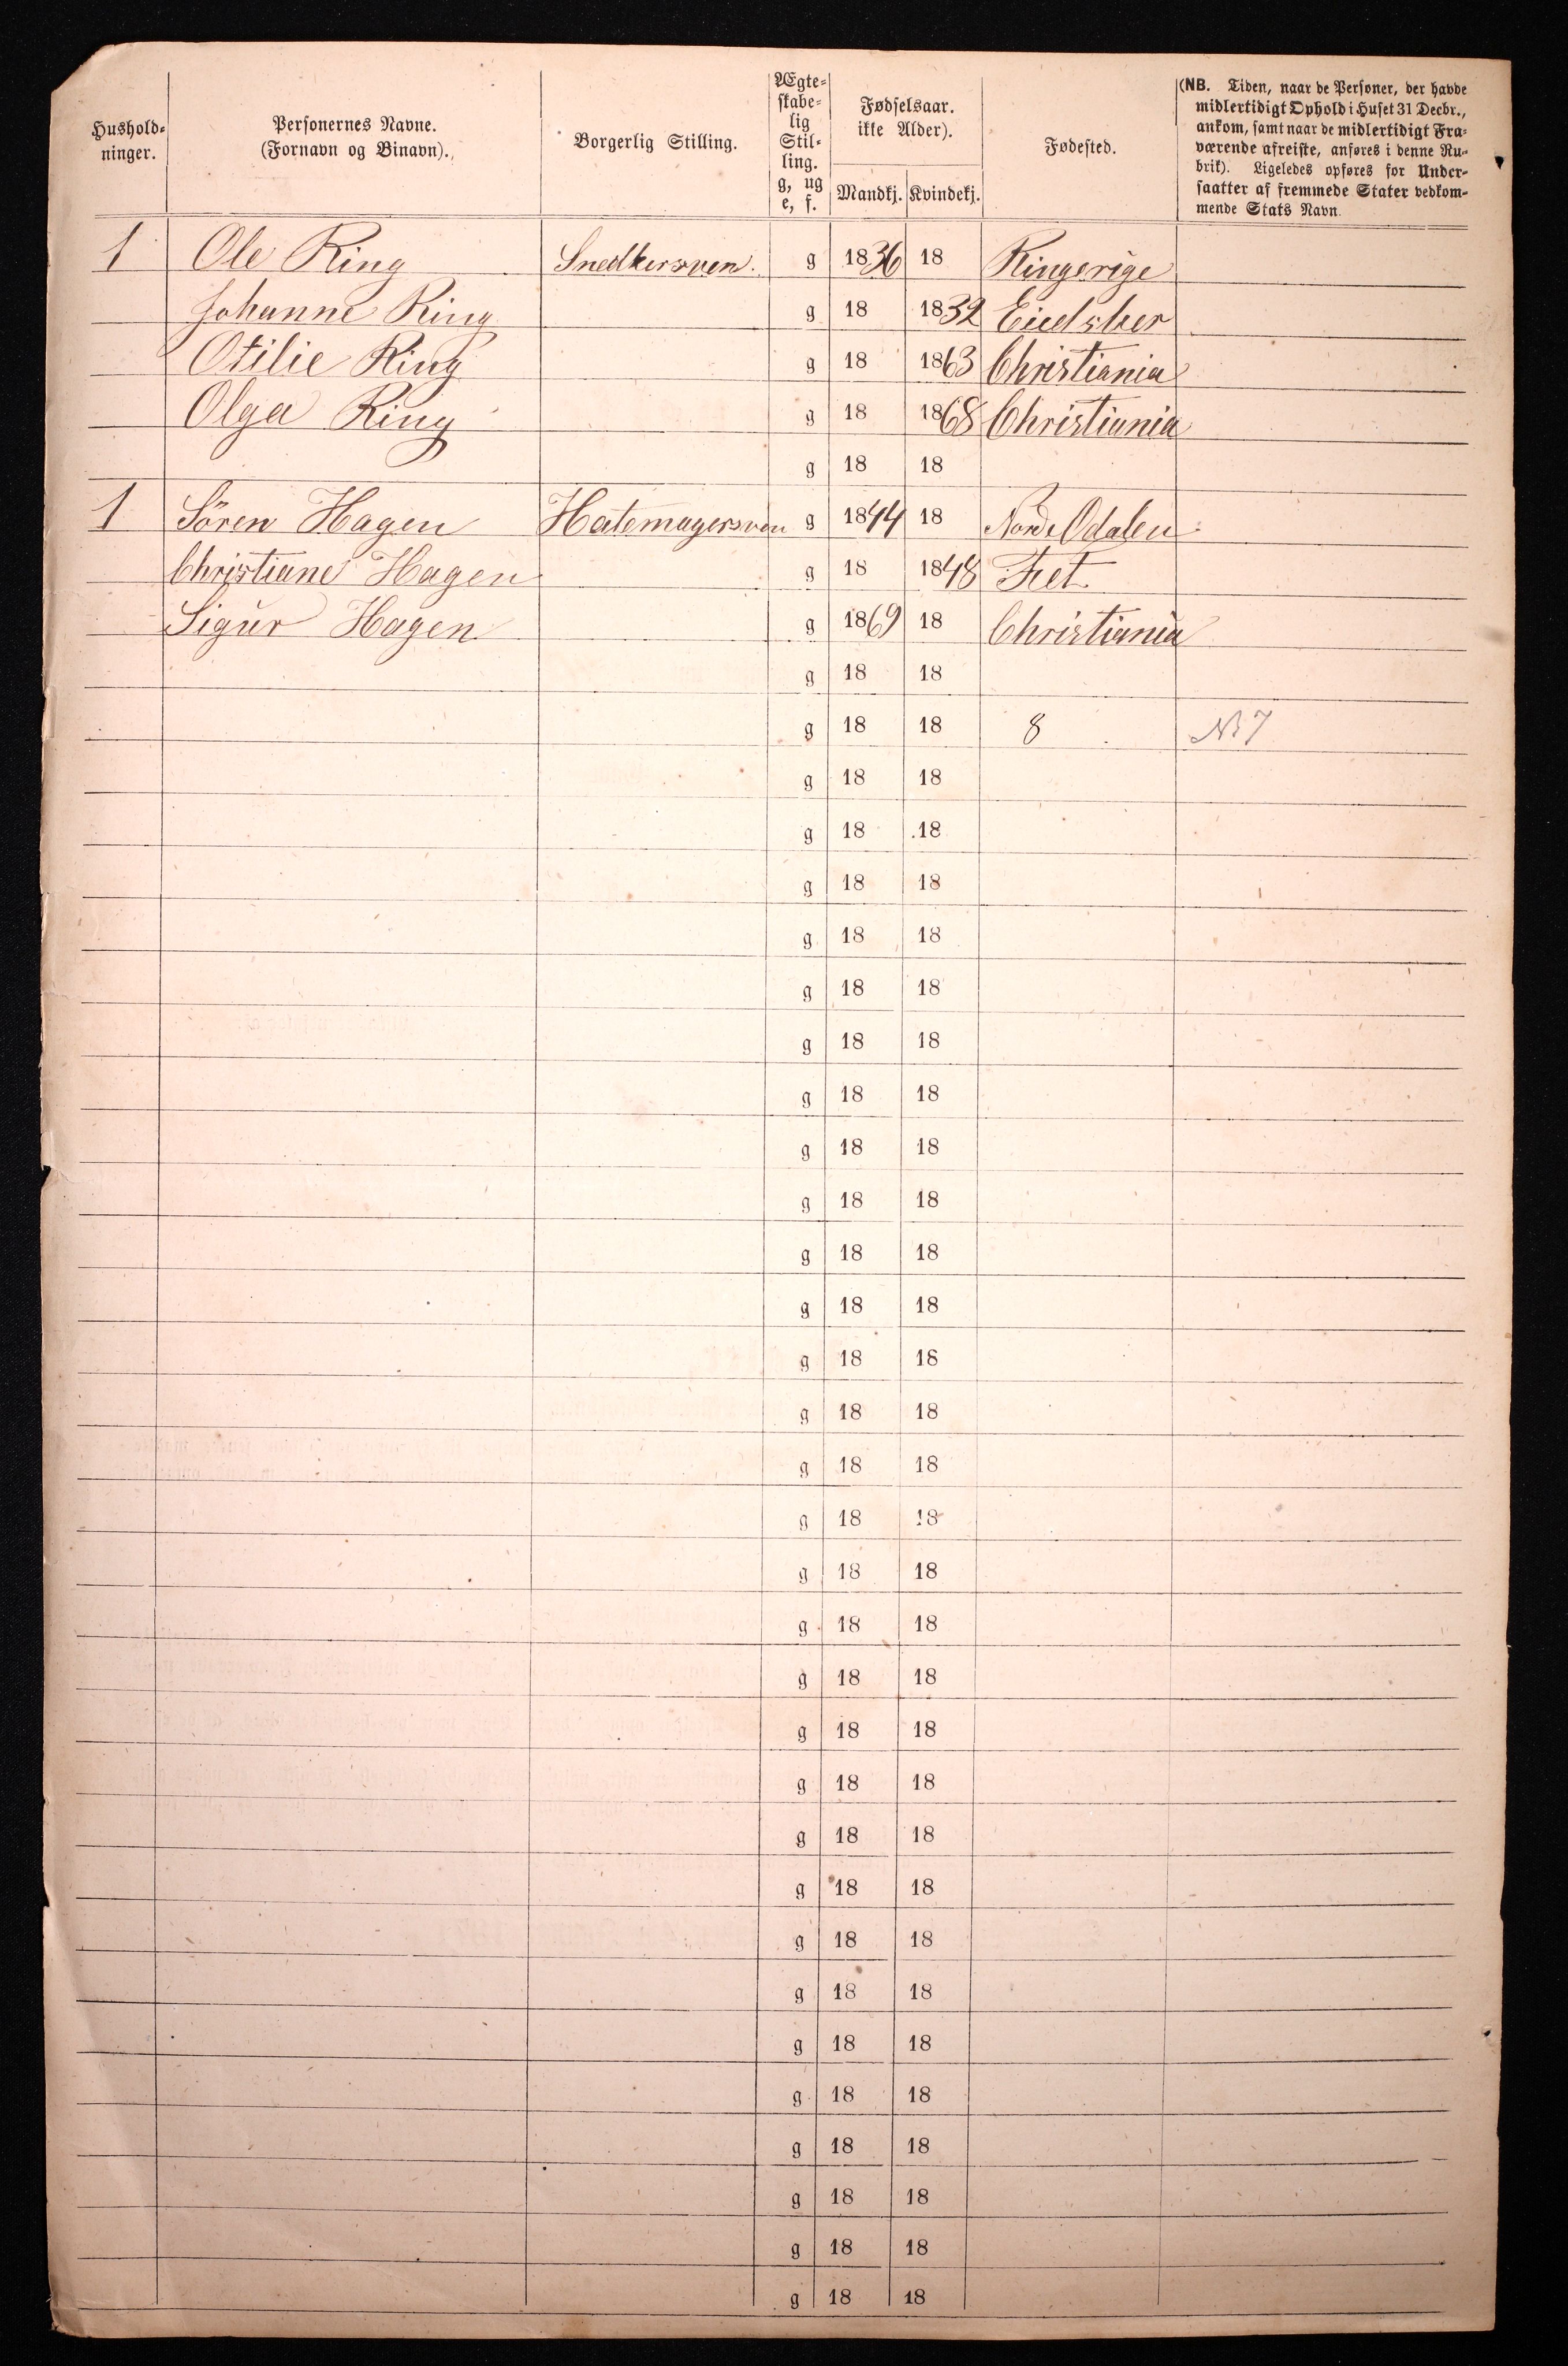 Hushold-
ninger.
Personernes Navne.
(Fornavn og Binavn).
Borgerlig Stilling.
Ægte-
skabe-
lig
Stil-
ling.
g, ug
e, f.
Fødselsaar.
ikke Alder).
Mandkj. Kvindekj.
Fødested.
(NB. Tiden, naar de Personer, der havde
midlertidigt Ophold i Huset 31 Decbr.,
ankom, samt naar de midlertidigt Fra-
værende afreiste, anføres i denne Ru-
brik). Ligeledes opføres for Under-
saatter af fremmede Stater vedkom-
mende Stats Navn.
1 Ole Ring Snedkersven. g 1836 18 Ringerige
Johanne Ring g 18 1832 Eidsker
Otilie Ring g 18 1863 Christiania
Olga Ring g 18 1868 Christiania
g 18 18
1 Sören Hagen Hatemagersven g 1844 18 Nordr Odalen
Christiane Hagen g 18 1848 Fet
Sigur Hagen g 1869 18 Christiania
g 18 18
g 18 18 8 No 7
g 18 18
g 18 18
g 18 18
g 18 18
g 18 18
g 18 18
g 18 18
g 18 18
g 18 18
g 18 18
g 18 18
g 18 18
g 18 18
g 18 18
g 18 18
g 18 18
g 18 18
g 18 18
g 18 18
g 18 18
g 18 18
g 18 18
g 18 18
g 18 18
g 18 18
g 18 18
g 18 18
g 18 18
g 18 18
g 18 18